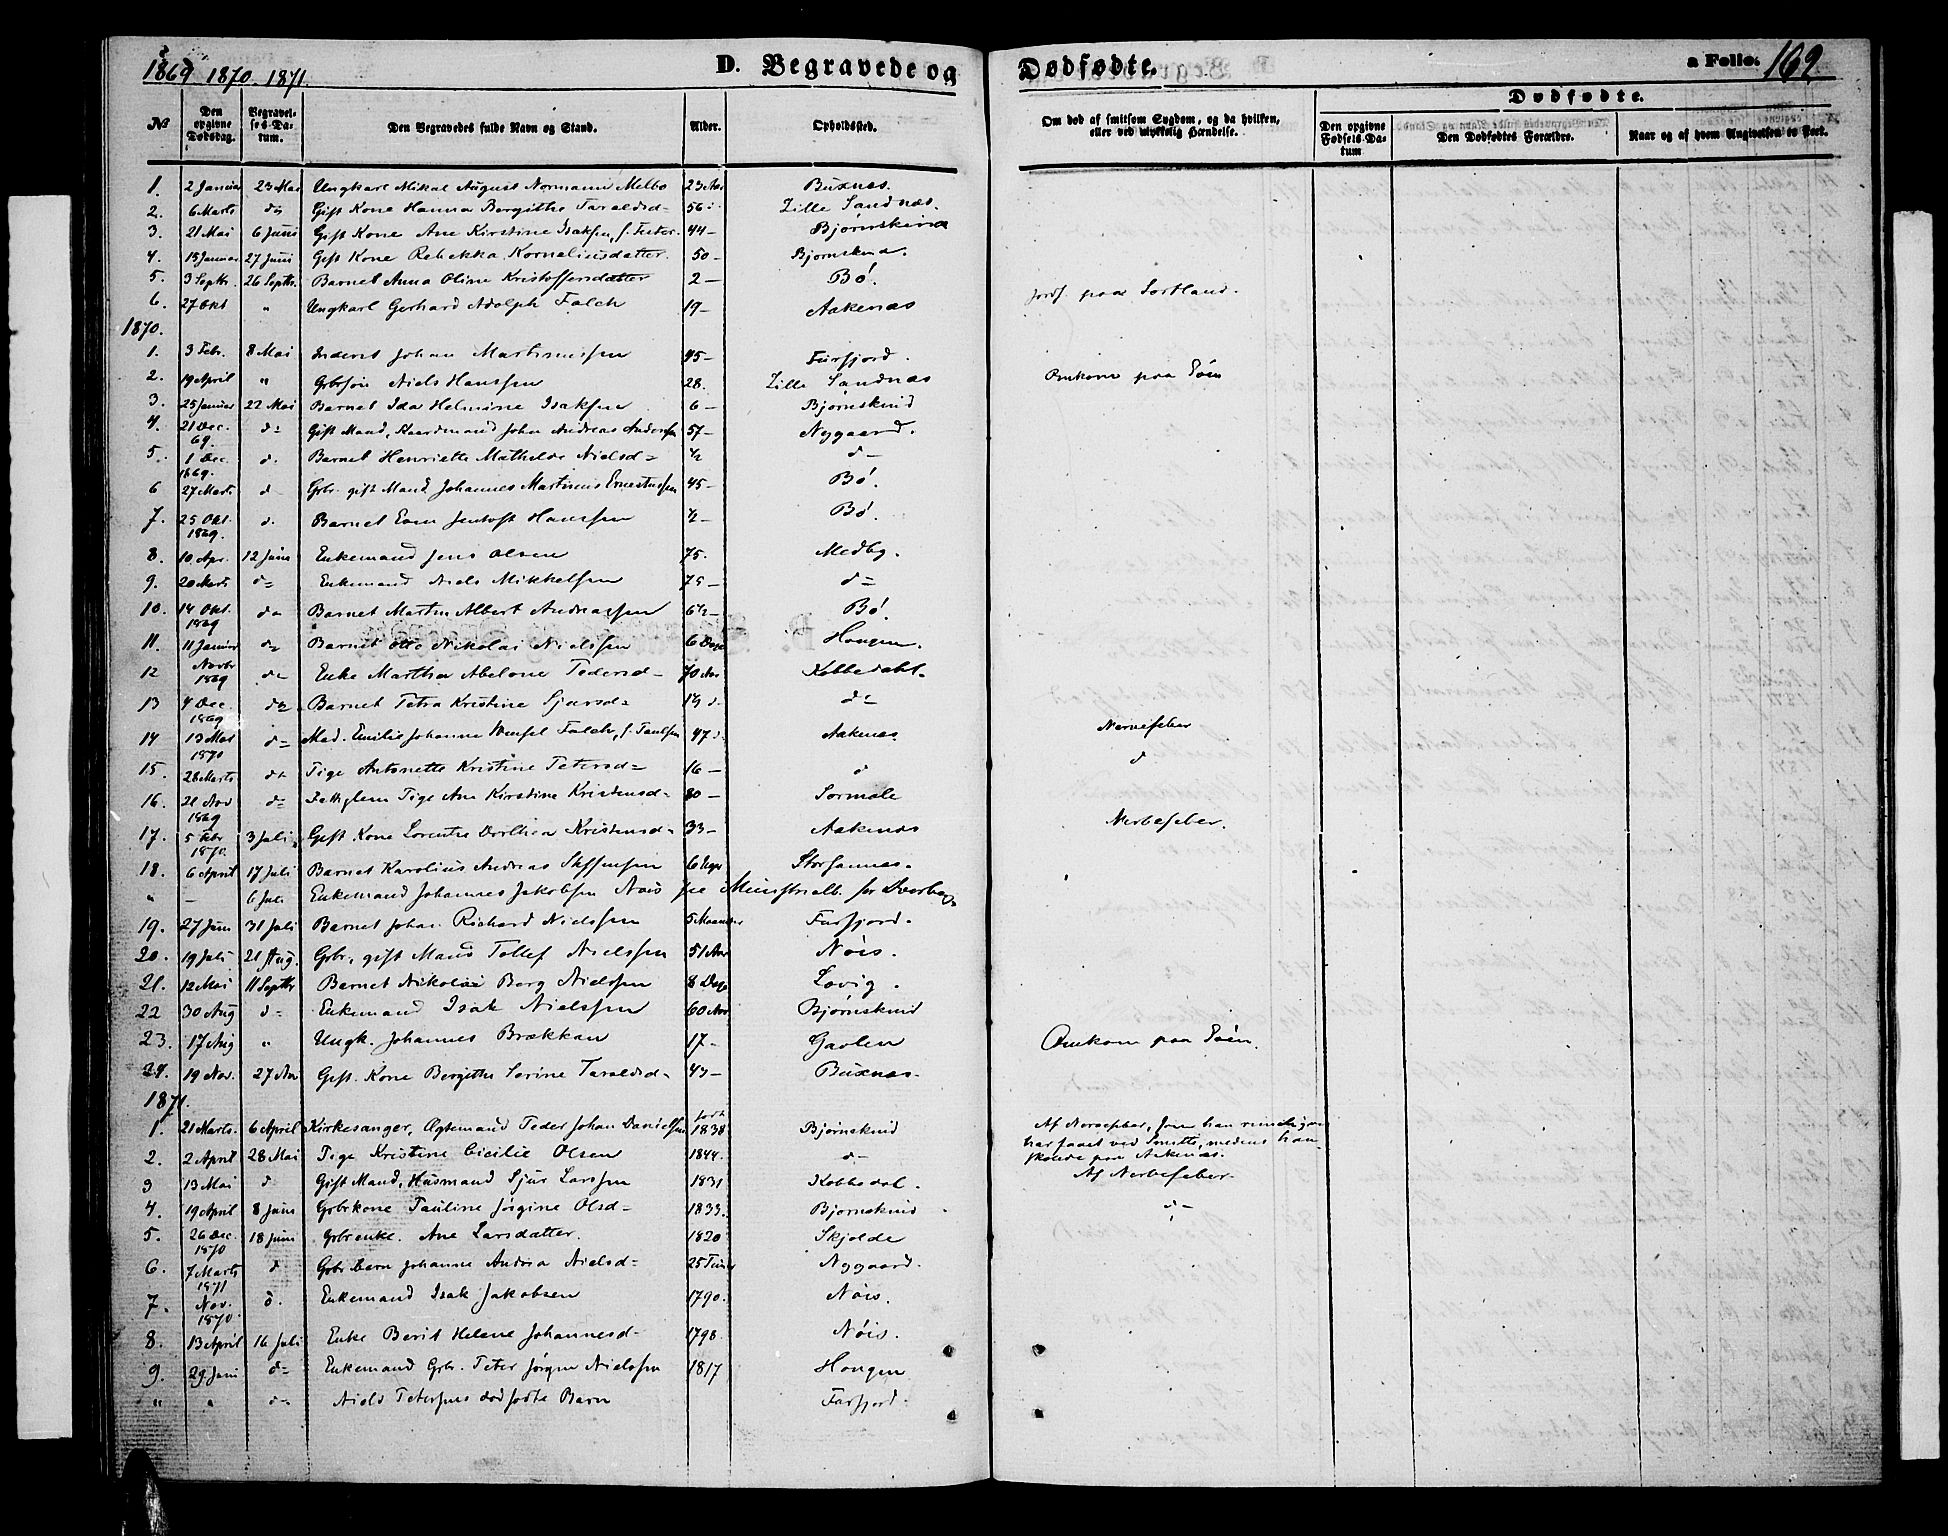 1869 1870. 1871.
D. Begravede og Dødfødte.
a Folio. 162
No Den opgivne Dødsdag. Begravelses-Datum. Den Begravedes fulde Navn og Stand. Alder. Opholdssted. Om død af smitsom Sygdom, og da hvilken, eller ved ulykkelig Hændelse. Dødfødte.
Den opgivne Fødsels-Datum Den Dødfødtes Forældre. Naar og af hvem Angivelsen er skeet.
1. 2 Januar 23 Mai Ungkarl Mikal August Normann Melbo 23 Aar Buxnæs.
2. 6 Marts do Gift Kone Hanna Bergithe Taraldsd= 56 Lille Sandnæs.
3. 21 Mai 6 Juni Gift Kone Ane Kirstine Isaksen, f. Peter. 44— Bjørnskind
4. 15 Januar 27 Juni Gift Kone Rebekka Korneliusdatter. 50— Bjørnskind.
5. 3 Septbr. 26 Septbr. Barnet Anna Oline Kristoffersdatter 2— Bø.
6. 27 Okt " Ungkarl Gerhard Adolph Falch 19— Aakenæs Jords. paa Sortland.
1870.
1. 3 Febr. 8 Mai Inderst Johan Martinussen 45— Forfjord.
2. 19 April " Grbrsøn Niels Hanssen 28. Lille Sandnæs Omkom paa Søen
3. 25 Januar 22 Mai Barnet Ida Helmine Isaksen 6— Bjørnskind
4. 21 Dec. 69. d= Gift Mand, Kaardmand John Andreas Andersen 57— Nygaard.
5. 1 Dec. 1869. d. Barnet Henriette Mathilde Nielsd= ½ d—
6 27 Marts d— Grbr. gift Mand Johannes Martinus Ernestussen 45— Bø.
7. 25 Okt. 1869. d. Barnet Even Jentoft Hanssen ½— Bø.
8. 10 Apr. 12 Juni Enkemand Jens Olsen 75. Medby.
9. 20 Marts d= Enkemand Niels Mikkelsen 75— d=
10. 14 Okt. 1869 d= Barnet Martin Albert Andreassen 6½— Bø.
11. 11 Januar d= Barnet Otto Nikolai Nielssen 6 Dage Hougen.
12 Novbr 1869 d= Enke Martha Abelone Pedersd= 70 Aar Kobbedahl.
13 4 Dec. 1869 d= Barnet Petra Kristine Sjursd= 1½ d. d=
14 13 Mai 1870 d= Mad. Emilie Johanne Wensel Falch, f. Paulsen 47 d. Aakenæs. Nervefeber
15. 28 Marts d= Pige Antonette Kristine Petersd= 16— d d
16. 21 Nov 1869 d= Fattiglem Pige Ane Kirstine Kristensd= 80— Sørmole
17. 5 Febr 1870. 3 Juli Gift Kone Lorentse Dorthea Kristensd= 33— Aakenæs Nervefeber.
18. 6 April 17 Juli Barnet Karolius Andreas Steffensen 6 Dage Storsannæs.
" — 6 Juli Enkemand Johannes Jakobsen Nøis se Ministrialb. for Dverberg.
19. 27 Juni 31 Juli Barnet Johan Richard Nielssen 5 Maaneder Forfjord.
20. 19 Juli 21 Aug. Grbr, gift Mand Tollef Nielssen 51 Aar Nøis.
21. 12 Mai 11 Septbr Barnet Nikolai Berg Nielssen 8 Dage Lovig.
22 30 Aug d= Enkemand Isak Nielssen 60 Aar Bjørnskind
23. 17 Aug " Ungk. Johannes Brækkan 17— Gavlen Omkom paa Søen.
24. 19 Nov. 27 Nov Gift. Kone Bergithe Sørine Taraldsd= 43— Buxnæs.
1871.
1. 21 Marts. 6 April Kirkesanger, Ægtemand Peder Johan Danielsen født 1838 Bjørnskind Af Nervefeber, som han rimeligvis
har faaet ved Smitte, medens han
skolede paa Aakenæs.
2. 2 April 28 Mai Pige Kristine Cicilie Olsen 1844. d—
3 13 Mai d Gift Mand, Husmand Sjur Larssen 1831 Kobbedal. Af Nervefeber.
4. 19 April 8 Juni Grbrkone Pauline Jørgine Olsd= 1833. Bjørnskind d—
5. 26 Dec. 1870 18 Juni Grbrenke. Ane Larsdatter. 1820 Skjolde
6. 7 Marts 1871 d Grbrbarn Johanne Andrea Nielsd= 25 Timer Nygaard.
7. Nov. 1870. d. Enkemand Isak Jakobsen 1790. Nøis.
8. 13 April 16 Juli Enke Berit Helene Johannesd= 1798. Nøis.
9. 29 Juni d= Enkemand Grbr. Peter Jørgen Nielssen 1817 Hougen
" " d= Niels Petersens dødfødte Barn Forfjord.